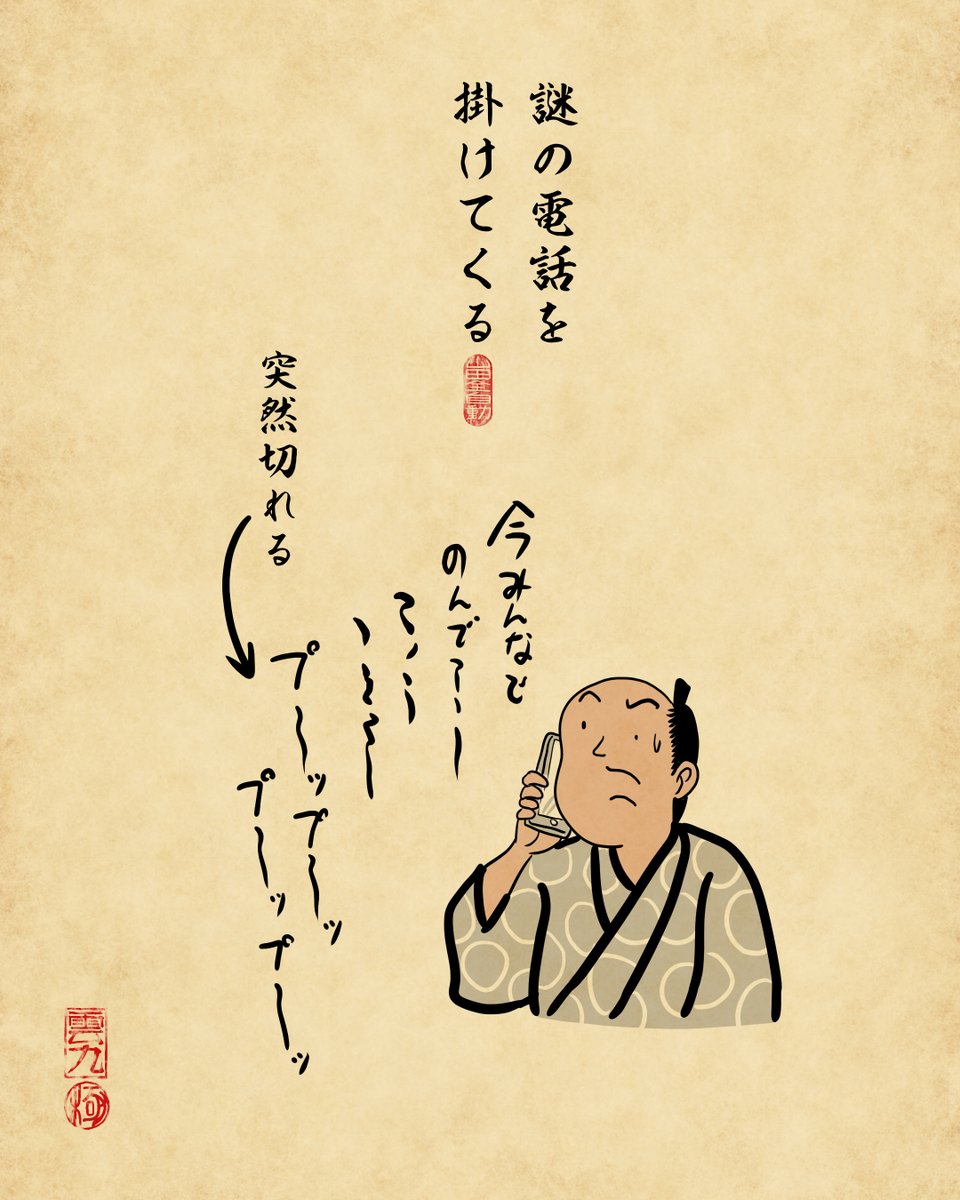 謎の電話を
掛けてくる
今みんなで
のんで
突然切れる
プーップーッ
プーップーッ
雲九
極